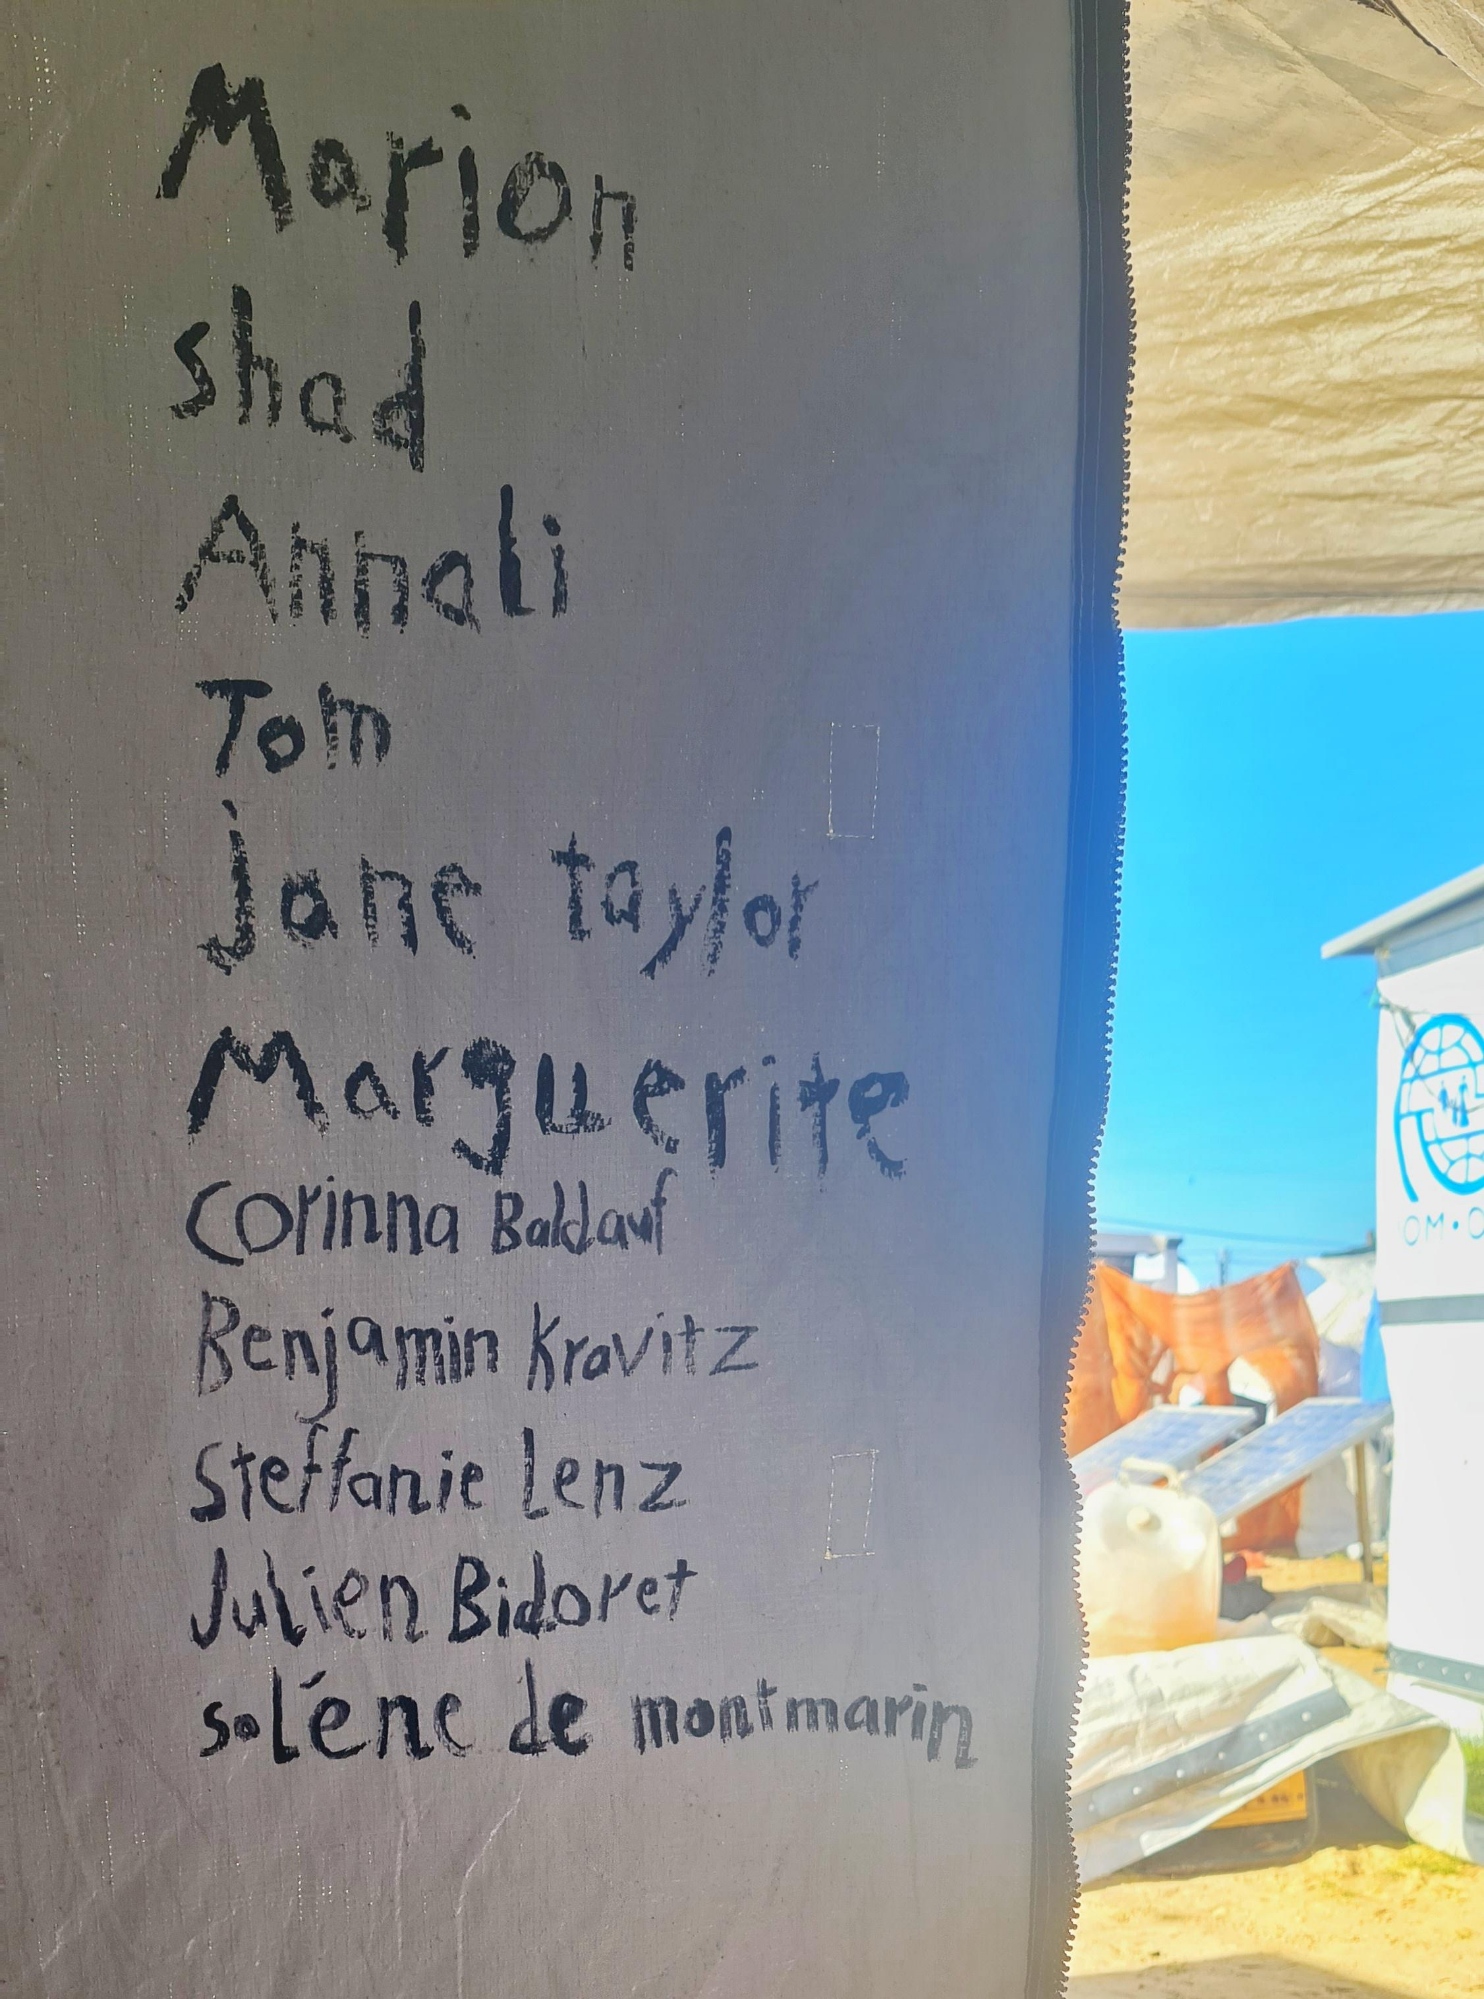 Marion
shad
Annali
Tom
jane taylor
Marguerite
Corinna Baldauf
Benjamin Kravitz
Steffanie Lenz
Julien Bidoret
soléne de montmarin